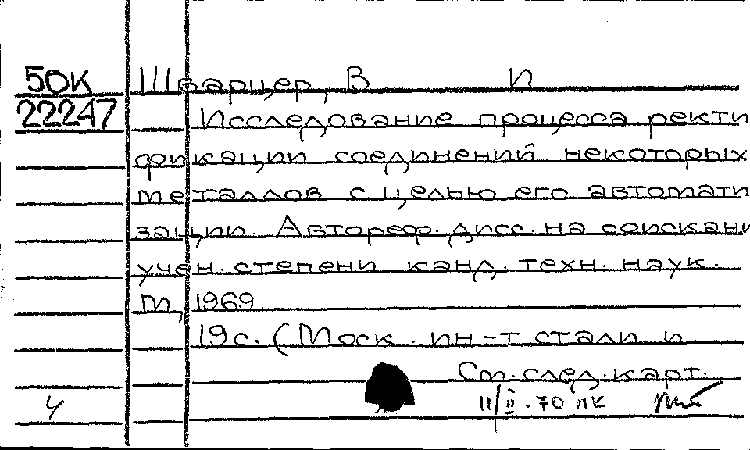 50К Шварцер, В И
22247 Исследование процесса ректи
фикации соединений некоторых
металлов с целью его автомати
зации. Автореф. дисс. на соискани
учен. степени канд. техн. наук.
М, 1969
19с. (Моск. ин-т стали и
См. след. карт.
4 11/II.70 ЛК